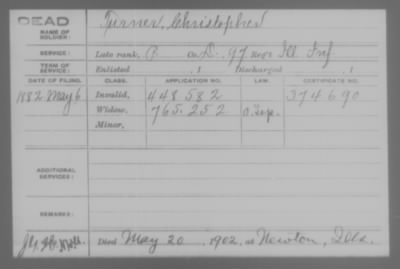 DEAD
NAME OF SOLDIER: Turner, Christopher
SERVICE: Late rank, P Co. D, 97 Reg't Ill Inf
TERM OF SERVICE: Enlisted , 1 Discharged , 1
DATE OF FILING. CLASS. APPLICATION NO. LAW. CERTIFICATE NO.
1882 May 6 Invalid, 448582 374690
Widow, 765.252
Minor,
ADDITIONAL SERVICES:
REMARKS:
Died May 20, 1902, at Newton, Ills.